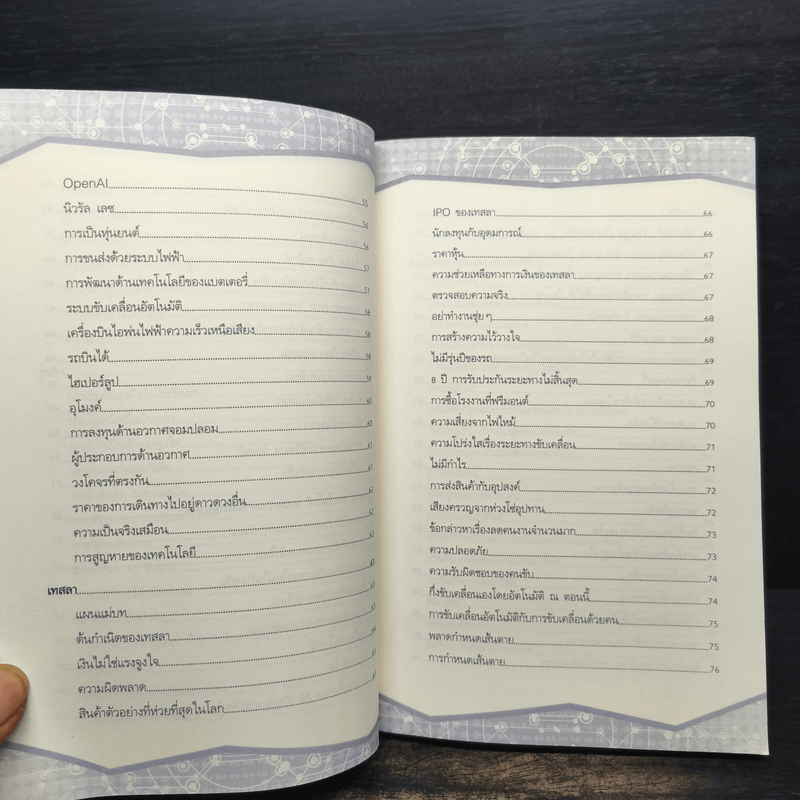 OpenAI 55
นิวรัล เลซ 56
การเป็นหุ่นยนต์ 56
การขนส่งด้วยระบบไฟฟ้า 57
การพัฒนาด้านเทคโนโลยีของแบตเตอรี่ 57
ระบบขับเคลื่อนอัตโนมัติ 58
เครื่องบินไอพ่นไฟฟ้าความเร็วเหนือเสียง 58
รถบินได้ 58
ไฮเปอร์ลูป 59
อุโมงค์ 60
การลงทุนด้านอวกาศจอมปลอม 60
ผู้ประกอบการด้านอวกาศ 61
วงโคจรที่ตรงกัน 61
ราคาของการเดินทางไปอยู่ดาวดวงอื่น 62
ความเป็นจริงเสมือน 62
การสูญหายของเทคโนโลยี 62
เทสลา 63
แผนแม่บท 63
ต้นกำเนิดของเทสลา 63
เงินไม่ใช่แรงจูงใจ 64
ความผิดพลาด 65
สินค้าตัวอย่างที่ห่วยที่สุดในโลก 65
IPO ของเทสลา 66
นักลงทุนกับอุดมการณ์ 66
ราคาหุ้น 67
ความช่วยเหลือทางการเงินของเทสลา 67
ตรวจสอบความจริง 67
อย่าทำงานชุ่ยๆ 68
การสร้างความไว้วางใจ 68
ไม่มีรุ่นปีของรถ 69
8 ปี การรับประกันระยะทางไม่สิ้นสุด 69
การซื้อโรงงานที่ฟรีมอนต์ 70
ความเสี่ยงจากไฟไหม้ 70
ความโปร่งใสเรื่องระยะทางขับเคลื่อน 71
ไม่มีกำไร 71
การส่งสินค้ากับอุปสงค์ 72
เสียงครวญจากห่วงโซ่อุปทาน 72
ข้อกล่าวหาเรื่องลดคนงานจำนวนมาก 73
ความปลอดภัย 73
ความรับผิดชอบของคนขับ 74
กึ่งขับเคลื่อนเองโดยอัตโนมัติ ณ ตอนนี้ 74
การขับเคลื่อนอัตโนมัติกับการขับเคลื่อนด้วยคน 75
พลาดกำหนดเส้นตาย 75
การกำหนดเส้นตาย 76